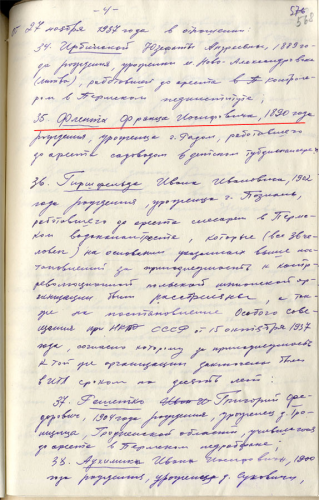 - 4 -
568
27 ноября 1937 года в отношении:
34. Юзефы Андреевны, 1889 го-
да рождения, уроженки м. Ново-Александровка
(Литва), работавшей до ареста
ром в Пермском пединституте;
35. Флента Франца Иосифовича, 1890 года
рождения, уроженца г. Радом, работавшего
до ареста садоводом в детском тубдиспансере;
36. Гиршфельда Ивана Ивановича, 1902
года рождения, уроженца г. Познань,
работавшего до ареста слесарем в Перм-
ском водоканалтресте, которые (все 36 че-
ловек) на основании указанных выше пос-
тановлений за принадлежность к контр-
революционной польской шпионской ор-
ганизации были расстреляны, а так-
же на постановление Особого Сове-
щания при НКВД СССР от 15 октября 1937
года, согласно которому за принадлежность
к той же организации заключены были
в ИТЛ сроком на девять лет:
37. Григорий Фе-
дорович, 1904 года рождения, уроженец д.
Гродненской области, учившегося
до ареста в Пермском педрабфаке;
38. Ивана Иосифовича, 1900
года рождения, уроженца д.